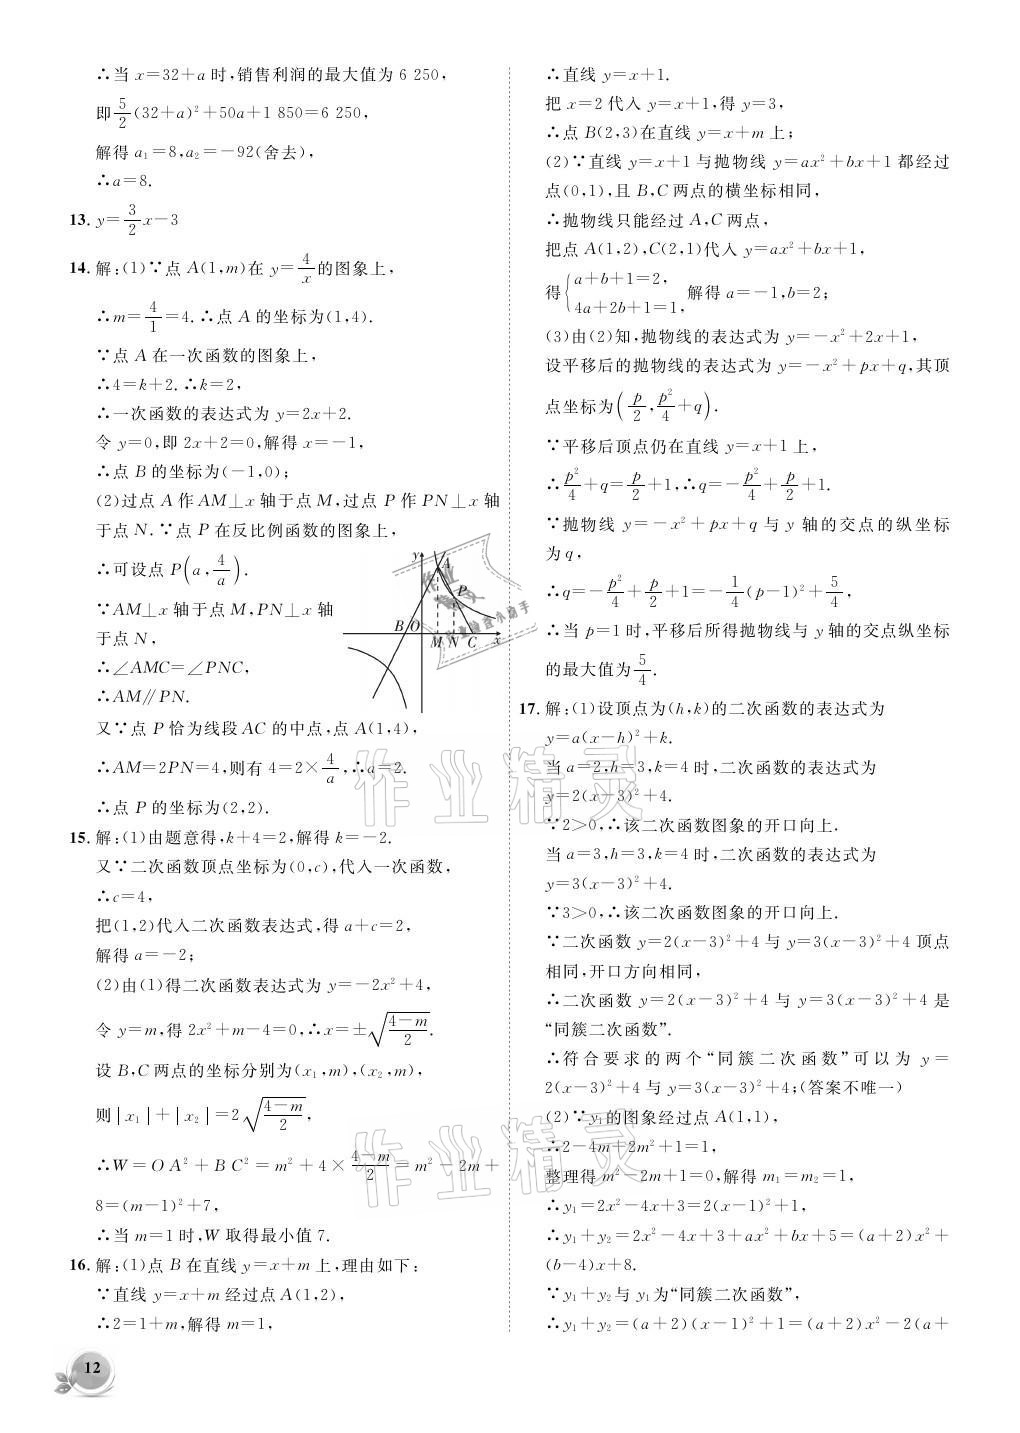 ∴当 x=32+a 时,销售利润的最大值为 6 250,
即5/2(32+a)²+50a+1 850=6 250,
解得 a₁=8,a₂=-92(舍去),
∴a=8.
13. y=3/2x-3
14. 解:(1)∵点 A(1,m)在 y=4/x的图象上,
∴m=4/1=4.∴点 A 的坐标为(1,4).
∵点 A 在一次函数的图象上,
∴4=k+2.∴k=2,
∴一次函数的表达式为 y=2x+2.
令 y=0,即 2x+2=0,解得 x=-1,
∴点 B 的坐标为(-1,0);
(2)过点 A 作 AM⊥x 轴于点 M,过点 P 作 PN⊥x 轴
于点 N.∵点 P 在反比例函数的图象上,
∴可设点 P(a,4/a).
∵AM⊥x 轴于点 M,PN⊥x 轴
于点 N,
∴∠AMC=∠PNC,
∴AM∥PN.
y
A
P
B O
M N C x
又∵点 P 恰为线段 AC 的中点,点 A(1,4),
∴AM=2PN=4,则有 4=2×4/a,∴a=2.
∴点 P 的坐标为(2,2).
15. 解:(1)由题意得,k+4=2,解得 k=-2.
又∵二次函数顶点坐标为(0,c),代入一次函数,
∴c=4,
把(1,2)代入二次函数表达式,得 a+c=2,
解得 a=-2;
(2)由(1)得二次函数表达式为 y=-2x²+4,
令 y=m,得 2x²+m-4=0,∴x=±√((4-m)/2).
设 B,C 两点的坐标分别为(x₁,m),(x₂,m),
则|x₁|+|x₂|=2√((4-m)/2),
∴W=OA²+BC²=m²+4×(4-m)/2=m²-2m+
8=(m-1)²+7,
∴当 m=1 时,W 取得最小值 7.
16. 解:(1)点 B 在直线 y=x+m 上,理由如下:
∵直线 y=x+m 经过点 A(1,2),
∴2=1+m,解得 m=1,
∴直线 y=x+1.
把 x=2 代入 y=x+1,得 y=3,
∴点 B(2,3)在直线 y=x+m 上;
(2)∵直线 y=x+1 与抛物线 y=ax²+bx+1 都经过
点(0,1),且 B,C 两点的横坐标相同,
∴抛物线只能经过 A,C 两点,
把点 A(1,2),C(2,1)代入 y=ax²+bx+1,
得{a+b+1=2, 4a+2b+1=1, 解得 a=-1,b=2;
(3)由(2)知,抛物线的表达式为 y=-x²+2x+1,
设平移后的抛物线的表达式为 y=-x²+px+q,其顶
点坐标为(p/2,p²/4+q).
∵平移后顶点仍在直线 y=x+1 上,
∴p²/4+q=p/2+1,∴q=-p²/4+p/2+1.
∵抛物线 y=-x²+px+q 与 y 轴的交点的纵坐标
为 q,
∴q=-p²/4+p/2+1=-1/4(p-1)²+5/4,
∴当 p=1 时,平移后所得抛物线与 y 轴的交点纵坐标
的最大值为5/4.
17. 解:(1)设顶点为(h,k)的二次函数的表达式为
y=a(x-h)²+k.
当 a=2,h=3,k=4 时,二次函数的表达式为
y=2(x-3)²+4.
∵2>0,∴该二次函数图象的开口向上.
当 a=3,h=3,k=4 时,二次函数的表达式为
y=3(x-3)²+4.
∵3>0,∴该二次函数图象的开口向上.
∵二次函数 y=2(x-3)²+4 与 y=3(x-3)²+4 顶点
相同,开口方向相同,
∴二次函数 y=2(x-3)²+4 与 y=3(x-3)²+4 是
“同簇二次函数”.
∴符合要求的两个“同簇二次函数”可以为 y=
2(x-3)²+4 与 y=3(x-3)²+4;(答案不唯一)
(2)∵y₁的图象经过点 A(1,1),
∴2-4m+2m²+1=1,
整理得 m²-2m+1=0,解得 m₁=m₂=1,
∴y₁=2x²-4x+3=2(x-1)²+1,
∴y₁+y₂=2x²-4x+3+ax²+bx+5=(a+2)x²+
(b-4)x+8.
∵y₁+y₂与 y₁为“同簇二次函数”,
∴y₁+y₂=(a+2)(x-1)²+1=(a+2)x²-2(a+
12
作业精灵
作业精灵